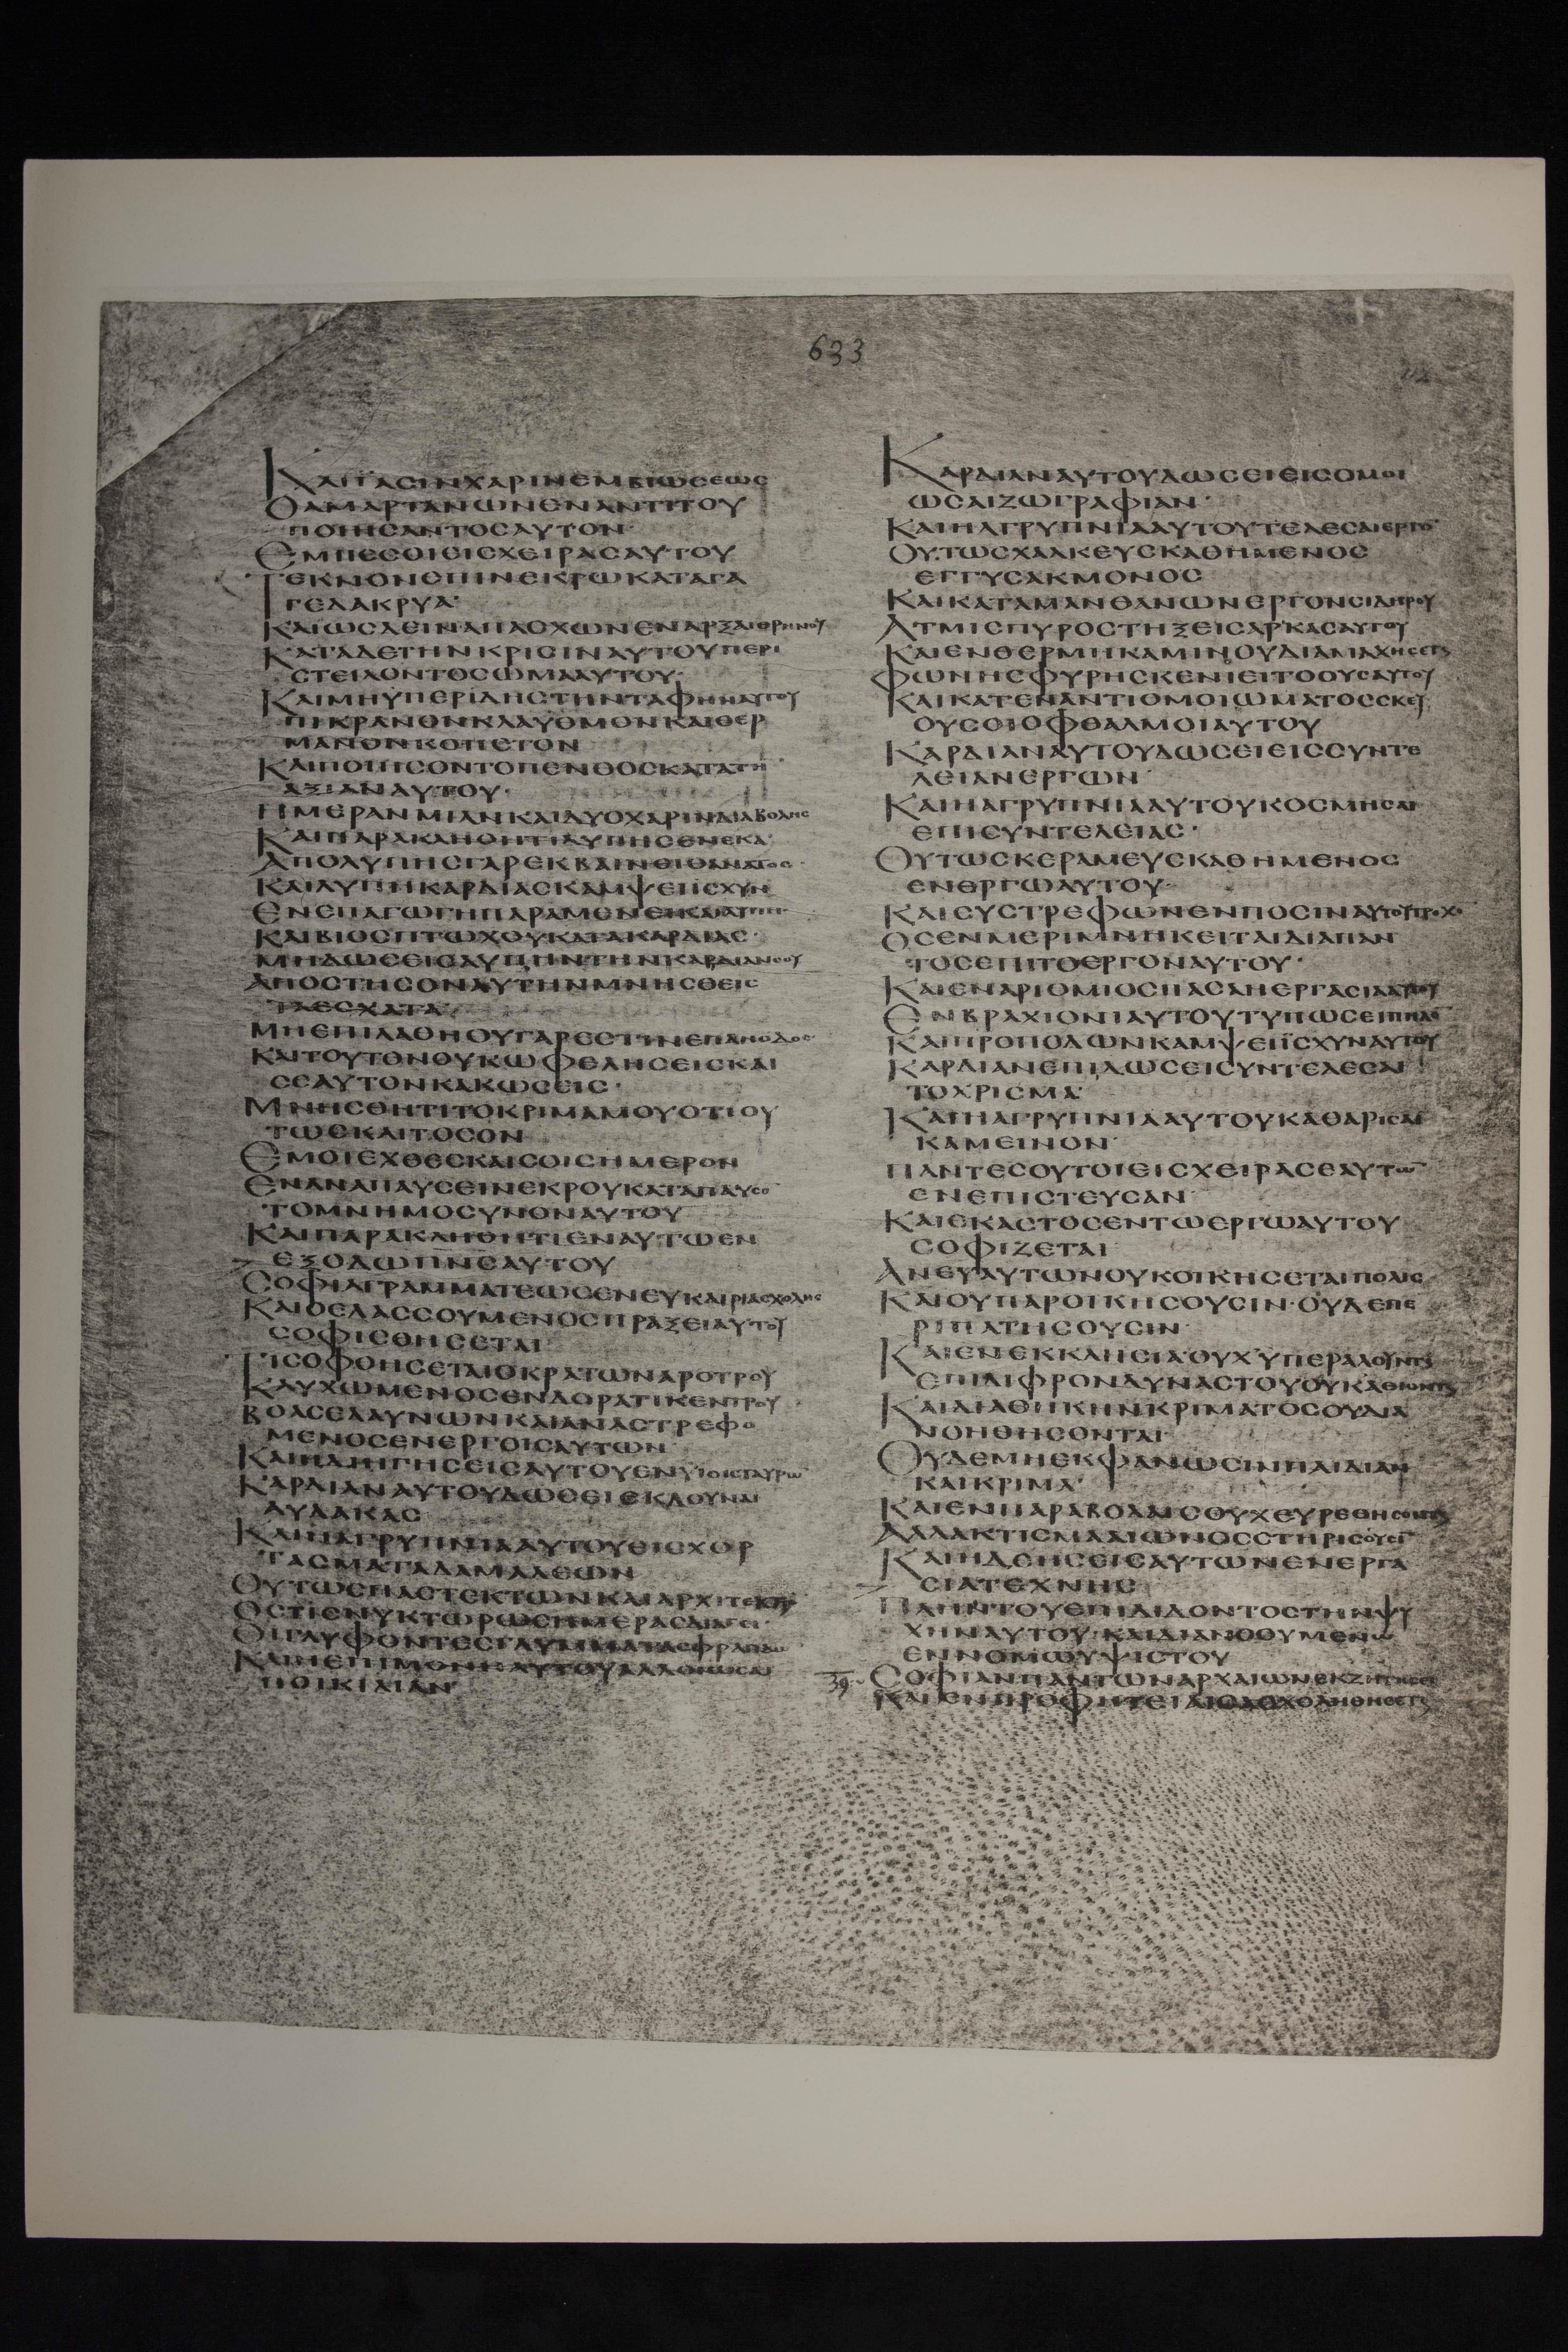 633
ΚΑΙΙΑϹΙΝΧΑΡΙΝΕΜΒΙΩϹΕΩϹ
ΟΑΜΑΡΤΑΝΩΝΕΝΑΝΤΙΤΟΥ
ΠΟΙΗϹΑΝΤΟϹΑΥΤΟΝ·
ΕΜΠΕϹΟΙΙϹΧΕΙΡΑϹΑΥΤΟΥ
ΤΕΚΝΟΝΕΠΙΝΕΚΡΩΚΑΤΑΓΑ
ΓΕΔΑΚΡΥΑ·
ΚΑΙΩϹΔΕΙΝΑΠΑϹΧΩΝΕΝΑΡΞΑΙΘΡΗΝΟΥ
ΚΑΤΑΔΕΤΗΝΚΡΙϹΙΝΑΥΤΟΥΠΕΡΙ
ϹΤΕΙΛΟΝΤΟϹΩΜΑΑΥΤΟΥ·
ΚΑΙΜΗΥΠΕΡΙΔΗϹΤΗΝΤΑΦΗΝΑΥΤΟΥ
ΠΙΚΡΑΝΟΝΚΛΑΥΘΜΟΝΚΑΙΘΕΡ
ΜΑΝΟΝΚΟΠΕΤΟΝ
ΚΑΙΠΟΙΗϹΟΝΤΟΠΕΝΘΟϹΚΑΤΑΤΗ̅
ΑΞΙΑΝΑΥΤΟΥ·
ΗΜΕΡΑΝΜΙΑΝΚΑΙΔΥΟΧΑΡΙΝΔΙΑΒΟΛΗϹ
ΚΑΙΠΑΡΑΚΛΗΘΗΤΙΛΥΠΗϹΕΝΕΚΑ·
ΑΠΟΛΥΠΗϹΓΑΡΕΚΒΑΙΝΕΙΘΑΝΑΤΟϹ·
ΚΑΙΛΥΠΗΚΑΡΔΙΑϹΚΑΜΨΕΙΙϹΧΥΝ
ΕΝΕΠΑΓΩΓΗΠΑΡΑΜΕΝΕΙΚΑΙΛΥΠΗ·
ΚΑΙΒΙΟϹΠΤΩΧΟΥΚΑΤΑΚΑΡΔΙΑϹ·
ΜΗΔΩϹΕΙϹΛΥΠΗΝΤΗΝΚΑΡΔΙΑΝϹΟΥ
ΑΠΟϹΤΗϹΟΝΑΥΤΗΝΜΝΗϹΘΕΙϹ
ΤΑΕϹΧΑΤΑ·
ΜΗΕΠΙΛΑΘΗΟΥΓΑΡΕϹΤΙΝΕΠΑΝΟΔΟϹ·
ΚΑΙΤΟΥΤΟΝΟΥΚΩΦΕΛΗϹΕΙϹΚΑΙ
ϹΕΑΥΤΟΝΚΑΚΩϹΕΙϹ·
ΜΝΗϹΘΗΤΙΤΟΚΡΙΜΑΜΟΥΟΤΙΟΥ
ΤΩϹΚΑΙΤΟϹΟΝ
ΕΜΟΙΕΧΘΕϹΚΑΙϹΟΙϹΗΜΕΡΟΝ
ΕΝΑΝΑΠΑΥϹΕΙΝΕΚΡΟΥΚΑΤΑΠΑΥϹΟ
ΤΟΜΝΗΜΟϹΥΝΟΝΑΥΤΟΥ
ΚΑΙΠΑΡΑΚΛΗΘΗΤΙΕΝΑΥΤΩΕΝ
ΕΞΟΔΩΠΝϹΑΥΤΟΥ
ϹΟΦΙΑΓΡΑΜΜΑΤΕΩϹΕΝΕΥΚΑΙΡΙΑϹΧΟΛΗϹ
ΚΑΙΟΕΛΑϹϹΟΥΜΕΝΟϹΠΡΑΞΕΙΑΥΤΟΥ
ϹΟΦΙϹΘΗϹΕΤΑΙ·
ΤΙϹΟΦΘΗϹΕΤΑΙΟΚΡΑΤΩΝΑΡΟΤΡΟΥ
ΚΑΥΧΩΜΕΝΟϹΕΝΔΟΡΑΤΙΚΕΝΤΡΟΥ
ΒΟΑϹΕΛΑΥΝΩΝΚΑΙΑΝΑϹΤΡΕΦΟ
ΜΕΝΟϹΕΝΕΡΓΟΙϹΑΥΤΩΝ
ΚΑΙΗΔΙΗΓΗϹΕΙϹΑΥΤΟΥΕΝΥΙΟΙϹΤΑΥΡΩ̅
ΚΑΡΔΙΑΝΑΥΤΟΥΔΩϹΕΙΕΚΔΟΥΝΑΙ
ΑΥΛΑΚΑϹ
ΚΑΙΗΑΓΡΥΠΝΙΑΑΥΤΟΥΕΙϹΧΟΡ
ΤΑϹΜΑΤΑΔΑΜΑΛΕΩΝ
ΟΥΤΩϹΠΑϹΤΕΚΤΩΝΚΑΙΑΡΧΙΤΕΚΤΩ̅
ΟϹΤΙϹΝΥΚΤΩΡΩϹΗΜΕΡΑϹΔΙΑΓΕΙ·
ΟΙΓΛΥΦΟΝΤΕϹΓΛΥΜΜΑΤΑϹΦΡΑΓΙΔΩ̅
ΚΑΙΗΕΠΙΜΟΝΗΑΥΤΟΥΑΛΛΟΙΩϹΑΙ
ΠΟΙΚΙΛΙΑΝ
ΚΑΡΔΙΑΝΑΥΤΟΥΔΩϹΕΙΕΙϹΟΜΟΙ
ΩϹΑΙΖΩΓΡΑΦΙΑΝ·
ΚΑΙΗΑΓΡΥΠΝΙΑΑΥΤΟΥΤΕΛΕϹΑΙΕΡΓΟ̅
ΟΥΤΩϹΧΑΛΚΕΥϹΚΑΘΗΜΕΝΟϹ
ΕΓΓΥϹΑΚΜΟΝΟϹ
ΚΑΙΚΑΤΑΜΑΝΘΑΝΩΝΕΡΓΟΝϹΙΔΗΡΟΥ
ΑΤΜΙϹΠΥΡΟϹΤΗΞΕΙϹΑΡΚΑϹΑΥΤΟΥ
ΚΑΙΕΝΘΕΡΜΗΚΑΜΙΝΟΥΔΙΑΜΑΧΗϹΕΤΑΙ
ΦΩΝΗϹΦΥΡΗϹΚΕΝΙΕΙΤΟΟΥϹΑΥΤΟΥ
ΚΑΙΚΑΤΕΝΑΝΤΙΟΜΟΙΩΜΑΤΟϹϹΚΕΥ
ΟΥϹΟΙΟΦΘΑΛΜΟΙΑΥΤΟΥ
ΚΑΡΔΙΑΝΑΥΤΟΥΔΩϹΕΙΕΙϹϹΥΝΤΕ
ΛΕΙΑΝΕΡΓΩΝ·
ΚΑΙΗΑΓΡΥΠΝΙΑΑΥΤΟΥΚΟϹΜΗϹΑΙ
ΕΠΙϹΥΝΤΕΛΕΙΑϹ·
ΟΥΤΩϹΚΕΡΑΜΕΥϹΚΑΘΗΜΕΝΟϹ
ΕΝΕΡΓΩΑΥΤΟΥ·
ΚΑΙϹΥϹΤΡΕΦΩΝΕΝΠΟϹΙΝΑΥΤΟΥΤΡΟΧΟ̅
ΟϹΕΝΜΕΡΙΜΝΗΚΕΙΤΑΙΔΙΑΠΑΝ
ΤΟϹΕΠΙΤΟΕΡΓΟΝΑΥΤΟΥ·
ΚΑΙΕΝΑΡΙΘΜΙΟϹΠΑϹΑΗΕΡΓΑϹΙΑΑΥΤΟΥ
ΕΝΒΡΑΧΙΟΝΙΑΥΤΟΥΤΥΠΩϹΕΙΠΗΛΟ̅
ΚΑΙΠΡΟΠΟΔΩΝΚΑΜΨΕΙΙϹΧΥΝΑΥΤΟΥ
ΚΑΡΔΙΑΝΕΠΙΔΩϹΕΙϹΥΝΤΕΛΕϹΑΙ
ΤΟΧΡΙϹΜΑ·
ΚΑΙΗΑΓΡΥΠΝΙΑΑΥΤΟΥΚΑΘΑΡΙϹΑΙ
ΚΑΜΕΙΝΟΝ·
ΠΑΝΤΕϹΟΥΤΟΙΕΙϹΧΕΙΡΑϹΕΑΥΤΩ̅
ΕΝΕΠΙϹΤΕΥϹΑΝ
ΚΑΙΕΚΑϹΤΟϹΕΝΤΩΕΡΓΩΑΥΤΟΥ
ϹΟΦΙΖΕΤΑΙ
ΑΝΕΥΑΥΤΩΝΟΥΚΟΙΚΗϹΕΤΑΙΠΟΛΙϹ
ΚΑΙΟΥΠΑΡΟΙΚΗϹΟΥϹΙΝ·ΟΥΔΕΠΕ
ΡΙΠΑΤΗϹΟΥϹΙΝ·
ΚΑΙΕΝΕΚΚΛΗϹΙΑΟΥΧΥΠΕΡΑΛΟΥΝΤΑΙ
ΕΠΙΔΙΦΡΟΝΔΥΝΑϹΤΟΥΟΥΚΑΘΙΟΥΝΤΑΙ
ΚΑΙΔΙΑΘΗΚΗΝΚΡΙΜΑΤΟϹΟΥΔΙΑ
ΝΟΗΘΗϹΟΝΤΑΙ·
ΟΥΔΕΜΗΕΚΦΑΝΩϹΙΝΠΑΙΔΙΑΝ
ΚΑΙΚΡΙΜΑ·
ΚΑΙΕΝΠΑΡΑΒΟΛΑΙϹΟΥΧΕΥΡΕΘΗϹΟΝΤΑΙ
ΑΛΛΑΚΤΙϹΜΑΑΙΩΝΟϹϹΤΗΡΙϹΟΥϹΙ̅
ΚΑΙΗΔΕΗϹΕΙϹΑΥΤΩΝΕΝΕΡΓΑ
ϹΙΑΤΕΧΝΗϹ
ΠΛΗΝΤΟΥΕΠΙΔΙΔΟΝΤΟϹΤΗΝΨΥ
ΧΗΝΑΥΤΟΥ·ΚΑΙΔΙΑΝΟΟΥΜΕΝΟΥ
ΕΝΝΟΜΩΥΨΙϹΤΟΥ
39 ϹΟΦΙΑΝΠΑΝΤΩΝΑΡΧΑΙΩΝΕΚΖΗΤΗϹΕΙ
ΚΑΙΕΝΠΡΟΦΗΤΕΙΑΙϹΑϹΧΟΛΗΘΗϹΕΤΑΙ